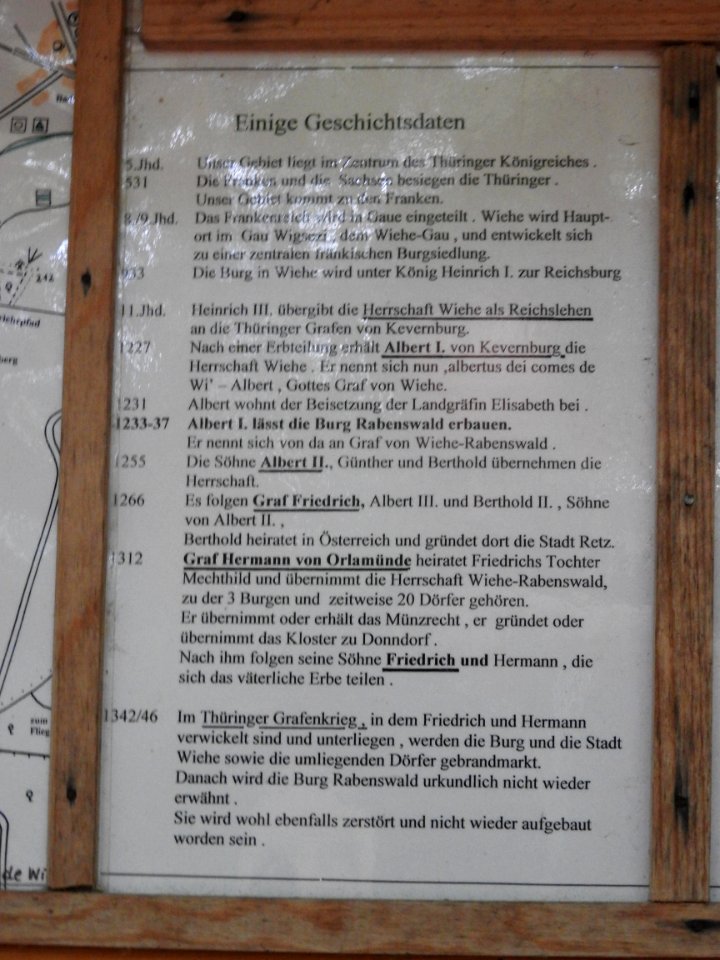 Einige Geschichtsdaten
5.Jhd. Unser Gebiet liegt im Zentrum des Thüringer Königreiches .
531 Die Franken und die Sachsen besiegen die Thüringer .
Unser Gebiet kommt zu den Franken.
8./9.Jhd. Das Frankenreich wird in Gaue eingeteilt . Wiehe wird Haupt-
ort im Gau Wigsezi , dem Wiehe-Gau , und entwickelt sich
zu einer zentralen fränkischen Burgsiedlung.
933 Die Burg in Wiehe wird unter König Heinrich I. zur Reichsburg
11.Jhd. Heinrich III. übergibt die Herrschaft Wiehe als Reichslehen
an die Thüringer Grafen von Kevernburg.
1227 Nach einer Erbteilung erhält Albert I. von Kevernburg die
Herrschaft Wiehe . Er nennt sich nun ,albertus dei comes de
Wi' – Albert , Gottes Graf von Wiehe.
1231 Albert wohnt der Beisetzung der Landgräfin Elisabeth bei .
1233-37 Albert I. lässt die Burg Rabenswald erbauen.
Er nennt sich von da an Graf von Wiehe-Rabenswald .
1255 Die Söhne Albert II., Günther und Berthold übernehmen die
Herrschaft.
1266 Es folgen Graf Friedrich, Albert III. und Berthold II. , Söhne
von Albert II. ,
Berthold heiratet in Österreich und gründet dort die Stadt Retz.
1312 Graf Hermann von Orlamünde heiratet Friedrichs Tochter
Mechthild und übernimmt die Herrschaft Wiehe-Rabenswald,
zu der 3 Burgen und zeitweise 20 Dörfer gehören.
Er übernimmt oder erhält das Münzrecht , er gründet oder
übernimmt das Kloster zu Donndorf .
Nach ihm folgen seine Söhne Friedrich und Hermann , die
sich das väterliche Erbe teilen .
1342/46 Im Thüringer Grafenkrieg , in dem Friedrich und Hermann
verwickelt sind und unterliegen , werden die Burg und die Stadt
Wiehe sowie die umliegenden Dörfer gebrandmarkt.
Danach wird die Burg Rabenswald urkundlich nicht wieder
erwähnt .
Sie wird wohl ebenfalls zerstört und nicht wieder aufgebaut
worden sein .
242
zum
Flieg
de Wi